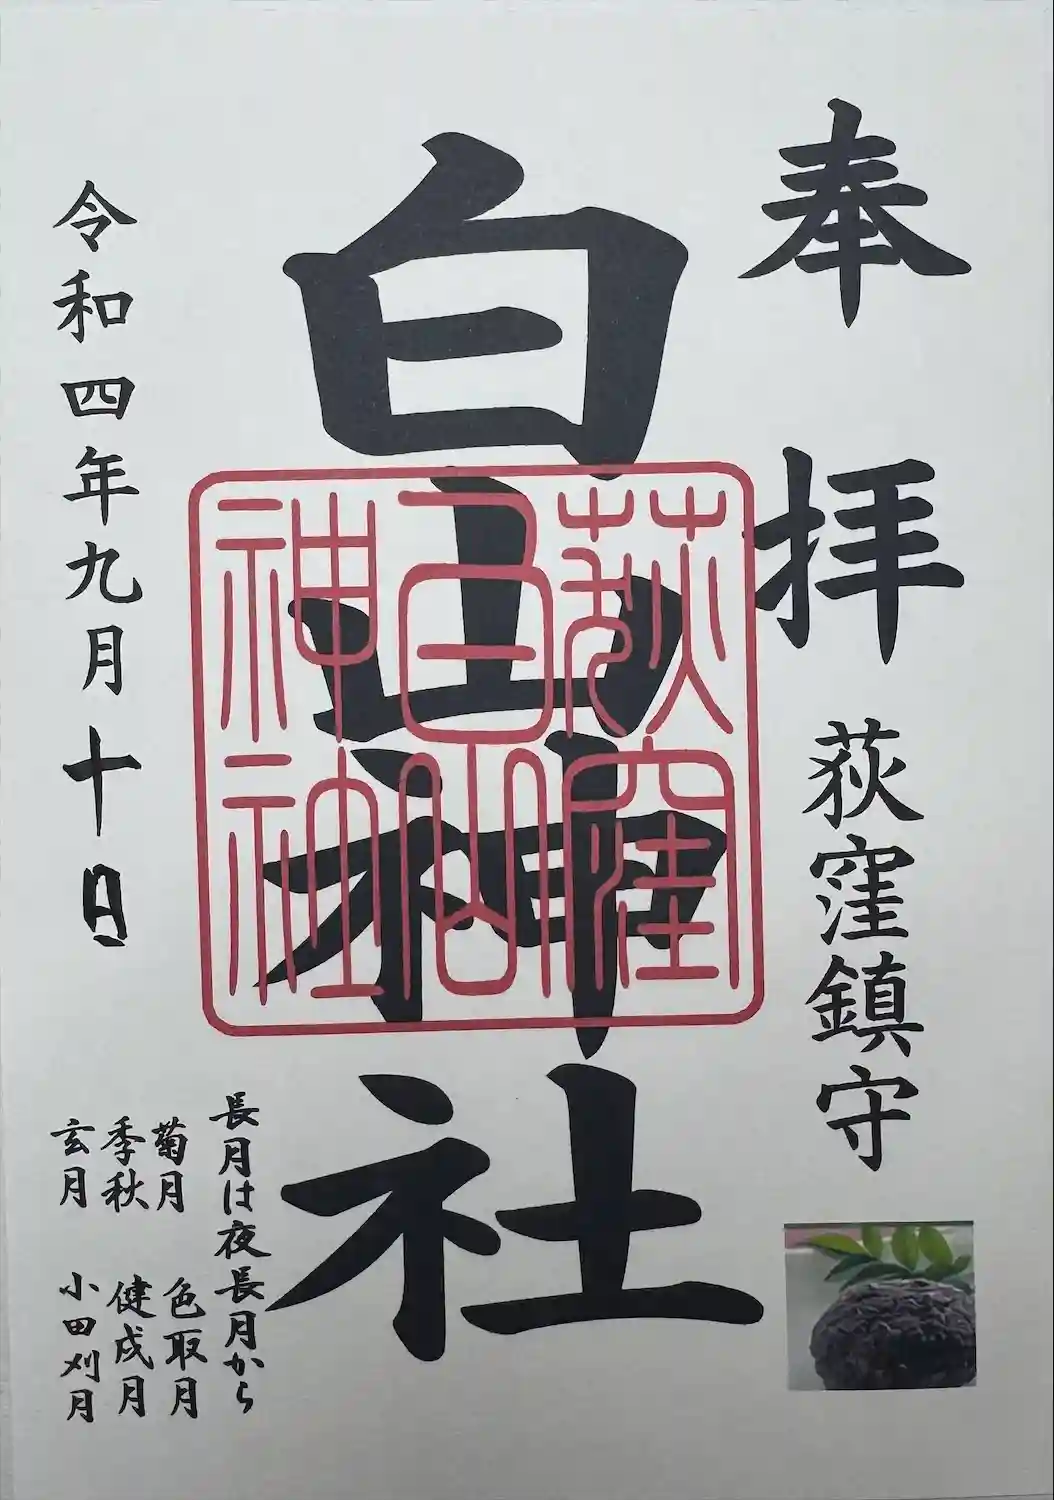 奉拝
荻窪鎮守
白山神社
荻窪
白山
神社
令和四年九月十日
長月は夜長月から
菊月 色取月
季秋 健戌月
玄月 小田刈月